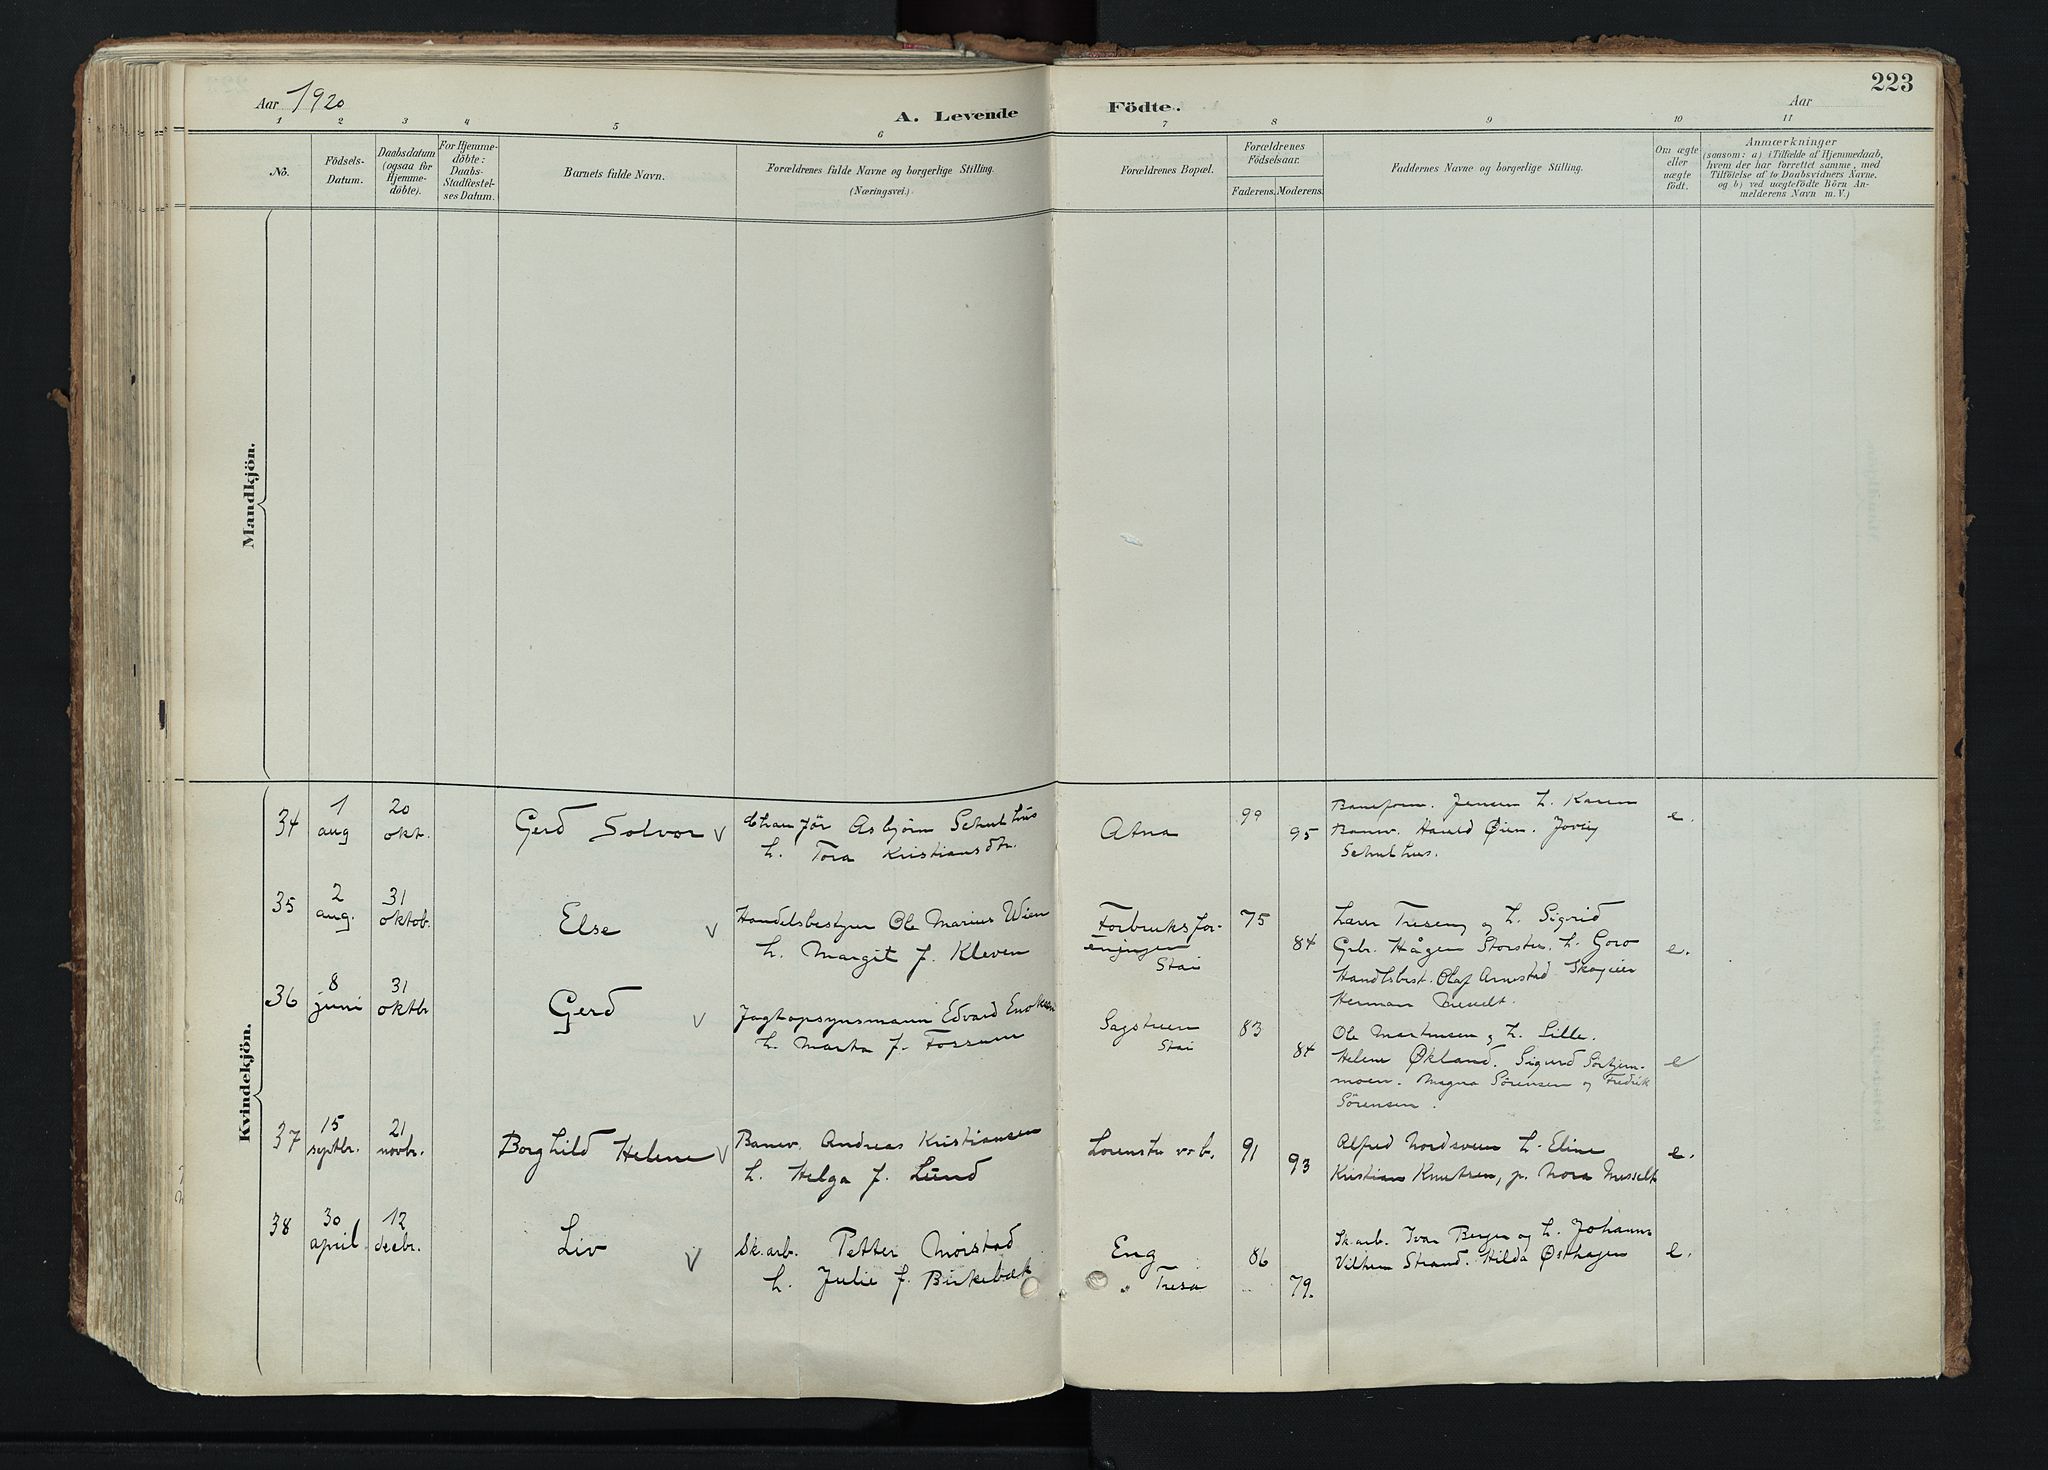 223
Aar 1920
A. Levende
Födte.
Aar
1 2 3 4 5 6 7 8 9 10 11
No.
Födsels-
Datum.
Daabsdatum
(ogsaa for
Hjemme-
döbte).
For Hjemme-
döbte:
Daabs-
Stadfæstel-
ses Datum.
Barnets fulde Navn.
Forældrenes fulde Navne og borgerlige Stilling.
(Næringsvei.)
Forældrenes Bopæl.
Forældrenes
Födselsaar.
Faderens.
Moderens.
Faddernes Navne og borgerlige Stilling.
Om ægte
eller
uægte
födt.
Anmærkninger
(saasom: a) i Tilfælde af Hjemmedaab,
hvem der har forrettet samme, med
Tilföielse af to Daabsvidners Navne.
og b) ved uægtefödte Börn An-
melderens Navn m. V.)
Mandkjön.
Kvindekjön.
34
1
aug
20
okt.
Gerd Solvor v
Asbjörn Schulhus
h. Tora Kristiansdtr.
Atna
99
95
Jensen h. Karen
Banev. Harald Øien.
Schulhus.
e.
35
2
aug.
31
oktob.
Else v
Handelsbestyrer Ole Marius Wien
h. Margit f. Kleven
Forbruksfor-
eningen
Stai
75
84
Lærer og h. Sigrid
Grbr. Hågen Storstu. h. Goro
Handlsbest. Olaf Arnestad. Skogeier
Herman
e.
36
8
juni
31
oktbr
Gerd v
Jagtopsynsmann Edvard
h. Marta f. Fossum
Sagstuen
Stai
83
84
Ole Martinsen og h. Lille.
Helene Økland. Sigurd
moen. Magna Sörensen og Fredrik
Sörensen.
e
37
15
septbr.
21
novbr.
Borghild Helene v
Banev. Andreas Kristiansen
h. Helga f. Lund
Lorenstu
91
93
Alfred Nordsveen h. Eline
Kristian Knutsen, p. Nora
e.
38
30
april
12
decbr.
Liv v
Sk.arb. Petter Mörstad
h. Julie f. Birkebæk
Eng
" Tresa
86
79.
Sk.arb. Ivar Berger og h. Johanne
Vilhem Strand. Hilda Østhagen
e.